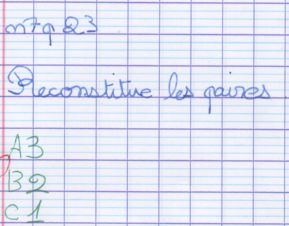 n°7 q 23
Reconstitue les paires
A3
B2
C1